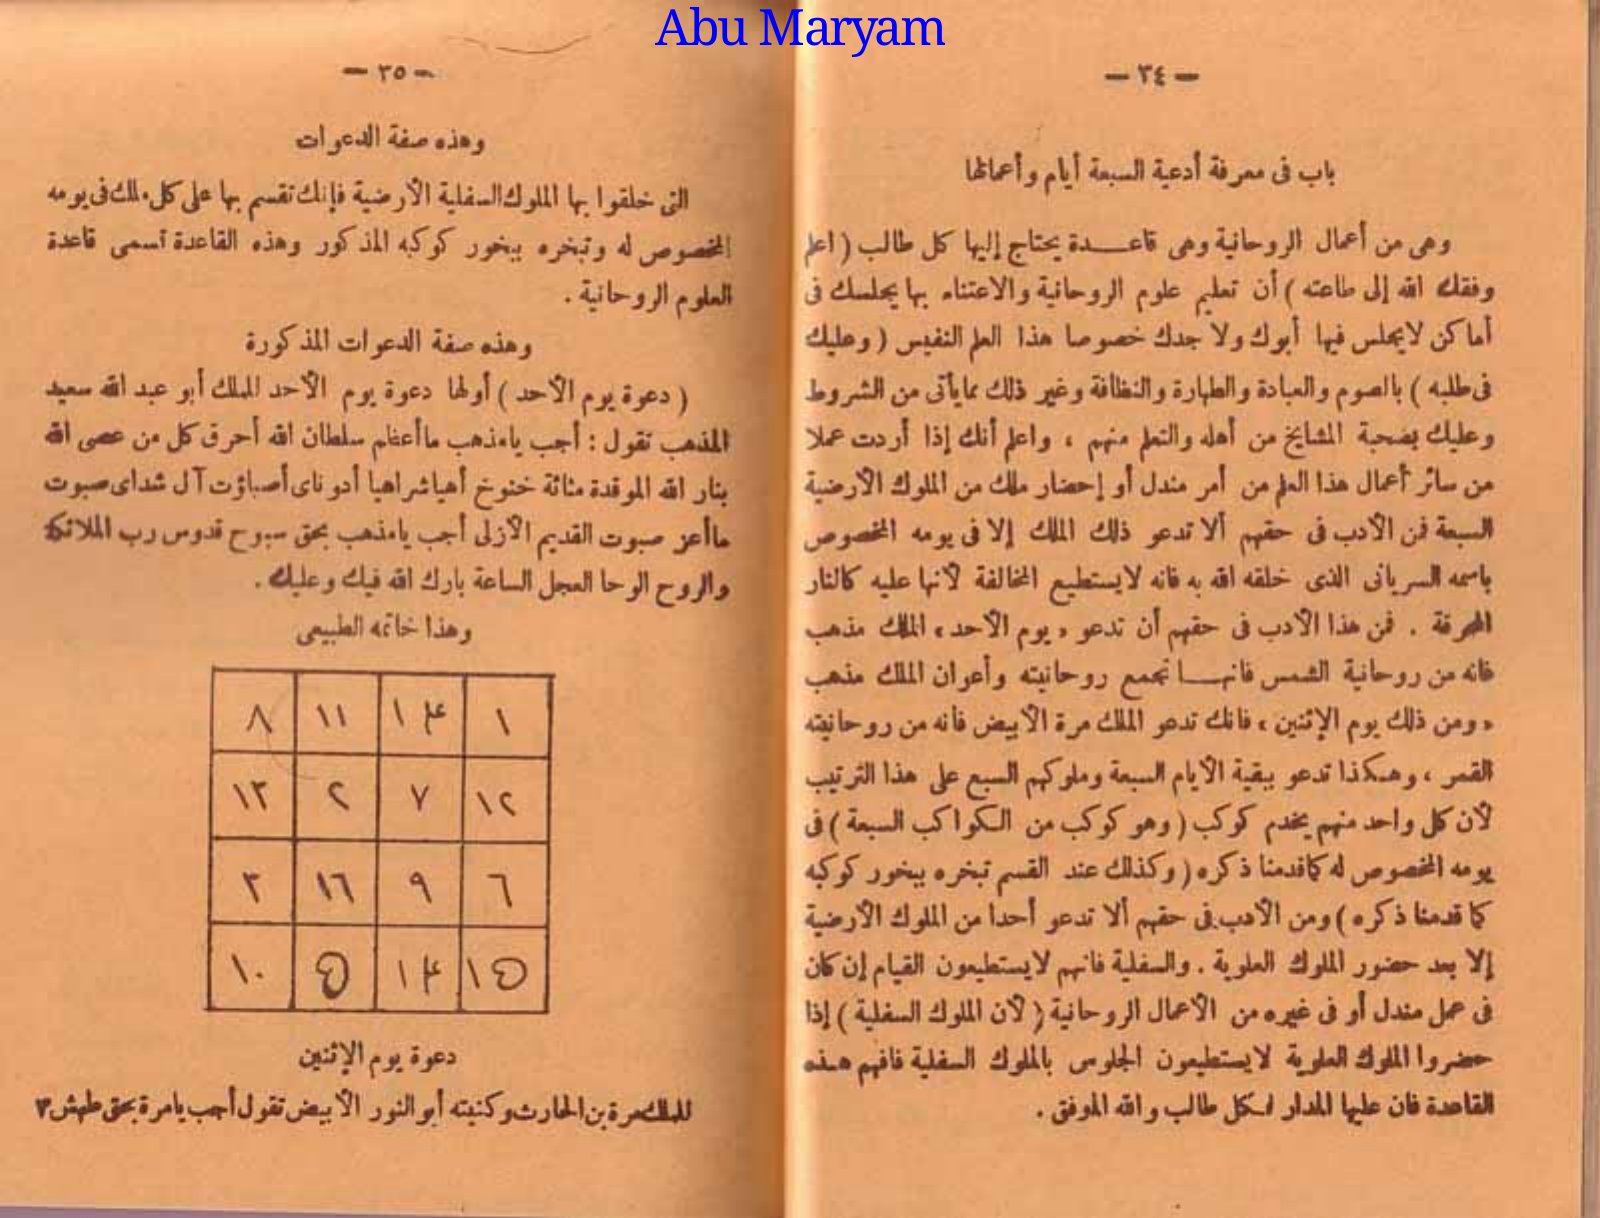 Abu Maryam
— ٣٤ —
باب فى معرفة أدعية السبعة أيام وأعمالها
وهى من أعمال الروحانية وهى قاعــدة يحتاج إليها كل طالب ( اعلم
وفقك الله إلى طاعته ) أن تعليم علوم الروحانية والاعتناء بها يجلسك فى
أماكن لايجلس فيها أبوك ولا جدك خصوصا هذا العلم النفيس ( وعليك
فى طلبه ) بالصوم والعبادة والطهارة والنظافة وغير ذلك مما يأتى من الشروط
وعليك بصحبة المشايخ من أهله والتعلم منهم ، واعلم أنك إذا أردت عملا
من سائر أعمال هذا العلم من أمر مندل أو إحضار ملك من الملوك الأرضية
السبعة فمن الأدب فى حقهم ألا تدعو ذلك الملك إلا فى يومه المخصوص
باسمه السريانى الذى خلقه الله به فانه لايستطيع المخالفة لأنها عليه كالنار
المحرقة . فمن هذا الأدب فى حقهم أن تدعو « يوم الأحد » الملك مذهب
فانه من روحانية الشمس فانهــا تجمع روحانيته وأعوان الملك مذهب
« ومن ذلك يوم الإثنين » فانك تدعو الملك مرة الأبيض فأنه من روحانيته
القمر ، وهكذا تدعو ببقية الأيام السبعة وملوكهم السبع على هذا الترتيب
لأن كل واحد منهم يخدم كوكب ( وهو كوكب من الكواكب السبعة ) فى
يومه المخصوص له كما قدمنا ذكره ( وكذلك عند القسم تبخره ببخور كوكبه
كما قدمنا ذكره ) ومن الأدب فى حقهم ألا تدعو أحدا من الملوك الأرضية
إلا بعد حضور الملوك العلوية . والسفلية فانهم لايستطيعون القيام إن كان
فى عمل مندل أو فى غيره من الأعمال الروحانية ( لأن الملوك السفلية ) إذا
حضروا الملوك العلوية لايستطيعون الجلوس بالملوك السفلية فافهم هـذه
القاعدة فان عليها المدار لـكل طالب والله الموفق .
— ٣٥ —
وهذه صفة الدعوات
التى خلقوا بها الملوك السفلية الأرضية فإنك تقسم بها على كل ملك فى يومه
المخصوص له وتبخره ببخور كوكبه المذكور وهذه القاعدة تسمى قاعدة
العلوم الروحانية .
وهذه صفة الدعوات المذكورة
( دعوة يوم الأحد ) أولها دعوة يوم الأحد للملك أبو عبد الله سعيد
المذهب تقول : أجب يامذهب ما أعظم سلطان الله أحرق كل من عصى الله
بنار الله الموقدة مثائة خنوخ أهيا شراهيا أدوناى أصباؤت آل شداى صبوت
ما أعز صبوت القديم الأزلى أجب يامذهب بحق سبوح قدوس رب الملائكة
والروح الوحا العجل الساعة بارك الله فيك وعليك .
وهذا خاتمه الطبيعى
١ ١٤ ١١ ٨
١٢ ٧ ٢ ١٣
٦ ٩ ١٦ ٣
١٥ ١٤ ٥ ١٠
دعوة يوم الإثنين
للملك مرة بن الحارث وكنيته أبو النور الأبيض تقول أجب يامرة بحق طهش ٣